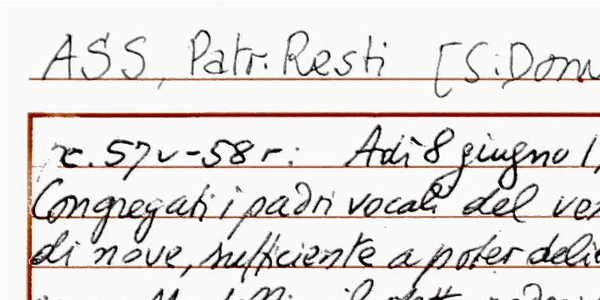 ASS, Patr. Resti [S. Dom
c. 57v-58r: Adì 8 giugno 1
Congregati i padri vocali del ve
di nove, sufficiente a poter deli
il